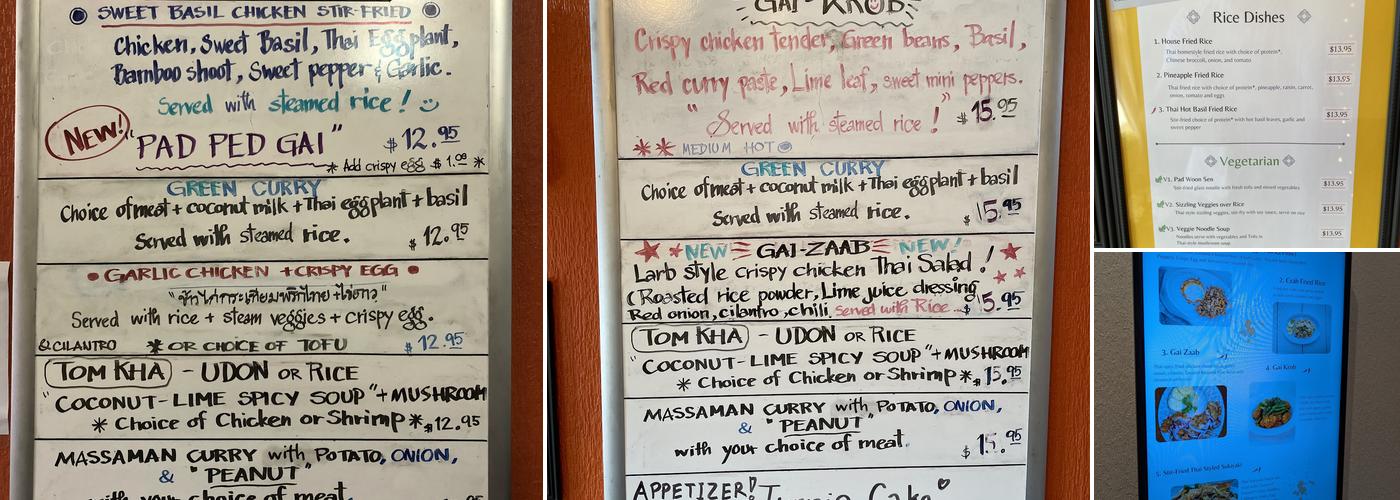 SWEET BASIL CHICKEN STIR-FRIED
Chicken, Sweet Basil, Thai Eggplant,
Bamboo shoot, Sweet pepper & Garlic.
Served with steamed rice!
NEW! "PAD PED GAI" $12.95
* Add crispy egg $1.00 *
GREEN CURRY
Choice of meat + coconut milk + Thai eggplant + basil
Served with steamed rice. $12.95
GARLIC CHICKEN + CRISPY EGG
Served with rice + steam veggies + crispy egg.
& CILANTRO * OR CHOICE OF TOFU $12.95
TOM KHA - UDON OR RICE
"COCONUT-LIME SPICY SOUP" + MUSHROOM
* Choice of Chicken or Shrimp * $12.95
MASSAMAN CURRY with POTATO, ONION,
& "PEANUT"
with your choice of meat.
GAI-KROB
Crispy chicken tender, Green beans, Basil,
Red curry paste, Lime leaf, sweet mini peppers.
"Served with steamed rice!" $15.95
** MEDIUM HOT
GREEN CURRY
Choice of meat + coconut milk + Thai eggplant + basil
Served with steamed rice. $15.95
NEW GAI-ZAAB NEW!
Larb style crispy chicken Thai Salad!
(Roasted rice powder, Lime juice dressing
Red onion, cilantro, chili. Served with Rice $15.95
TOM KHA - UDON OR RICE
"COCONUT-LIME SPICY SOUP" + MUSHROOM
* Choice of Chicken or Shrimp * $15.95
MASSAMAN CURRY with POTATO, ONION,
& "PEANUT"
with your choice of meat. $15.95
APPETIZER!
Rice Dishes
1. House Fried Rice $13.95
Thai homestyle fried rice with choice of protein*,
Chinese broccoli, onion, and tomato
2. Pineapple Fried Rice $13.95
Thai fried rice with choice of protein*, pineapple, raisin, carrot,
onion, tomato and eggs
3. Thai Hot Basil Fried Rice $13.95
Stir-fried choice of protein* with hot basil leaves, garlic and
sweet pepper
Vegetarian
V1. Pad Woon Sen $13.95
Stir-fried glass noodle with fresh tofu and mixed vegetables
V2. Sizzling Veggies over Rice $13.95
Thai style sizzling veggies, stir-fry with soy sauce, serve on rice
V3. Veggie Noodle Soup $13.95
Noodles serve with vegetables and Tofu in
Thai-style mushroom soup
2. Crab Fried Rice
3. Gai Zaab
4. Gai Krob
5. Stir-Fried Thai Styled Sukiyaki